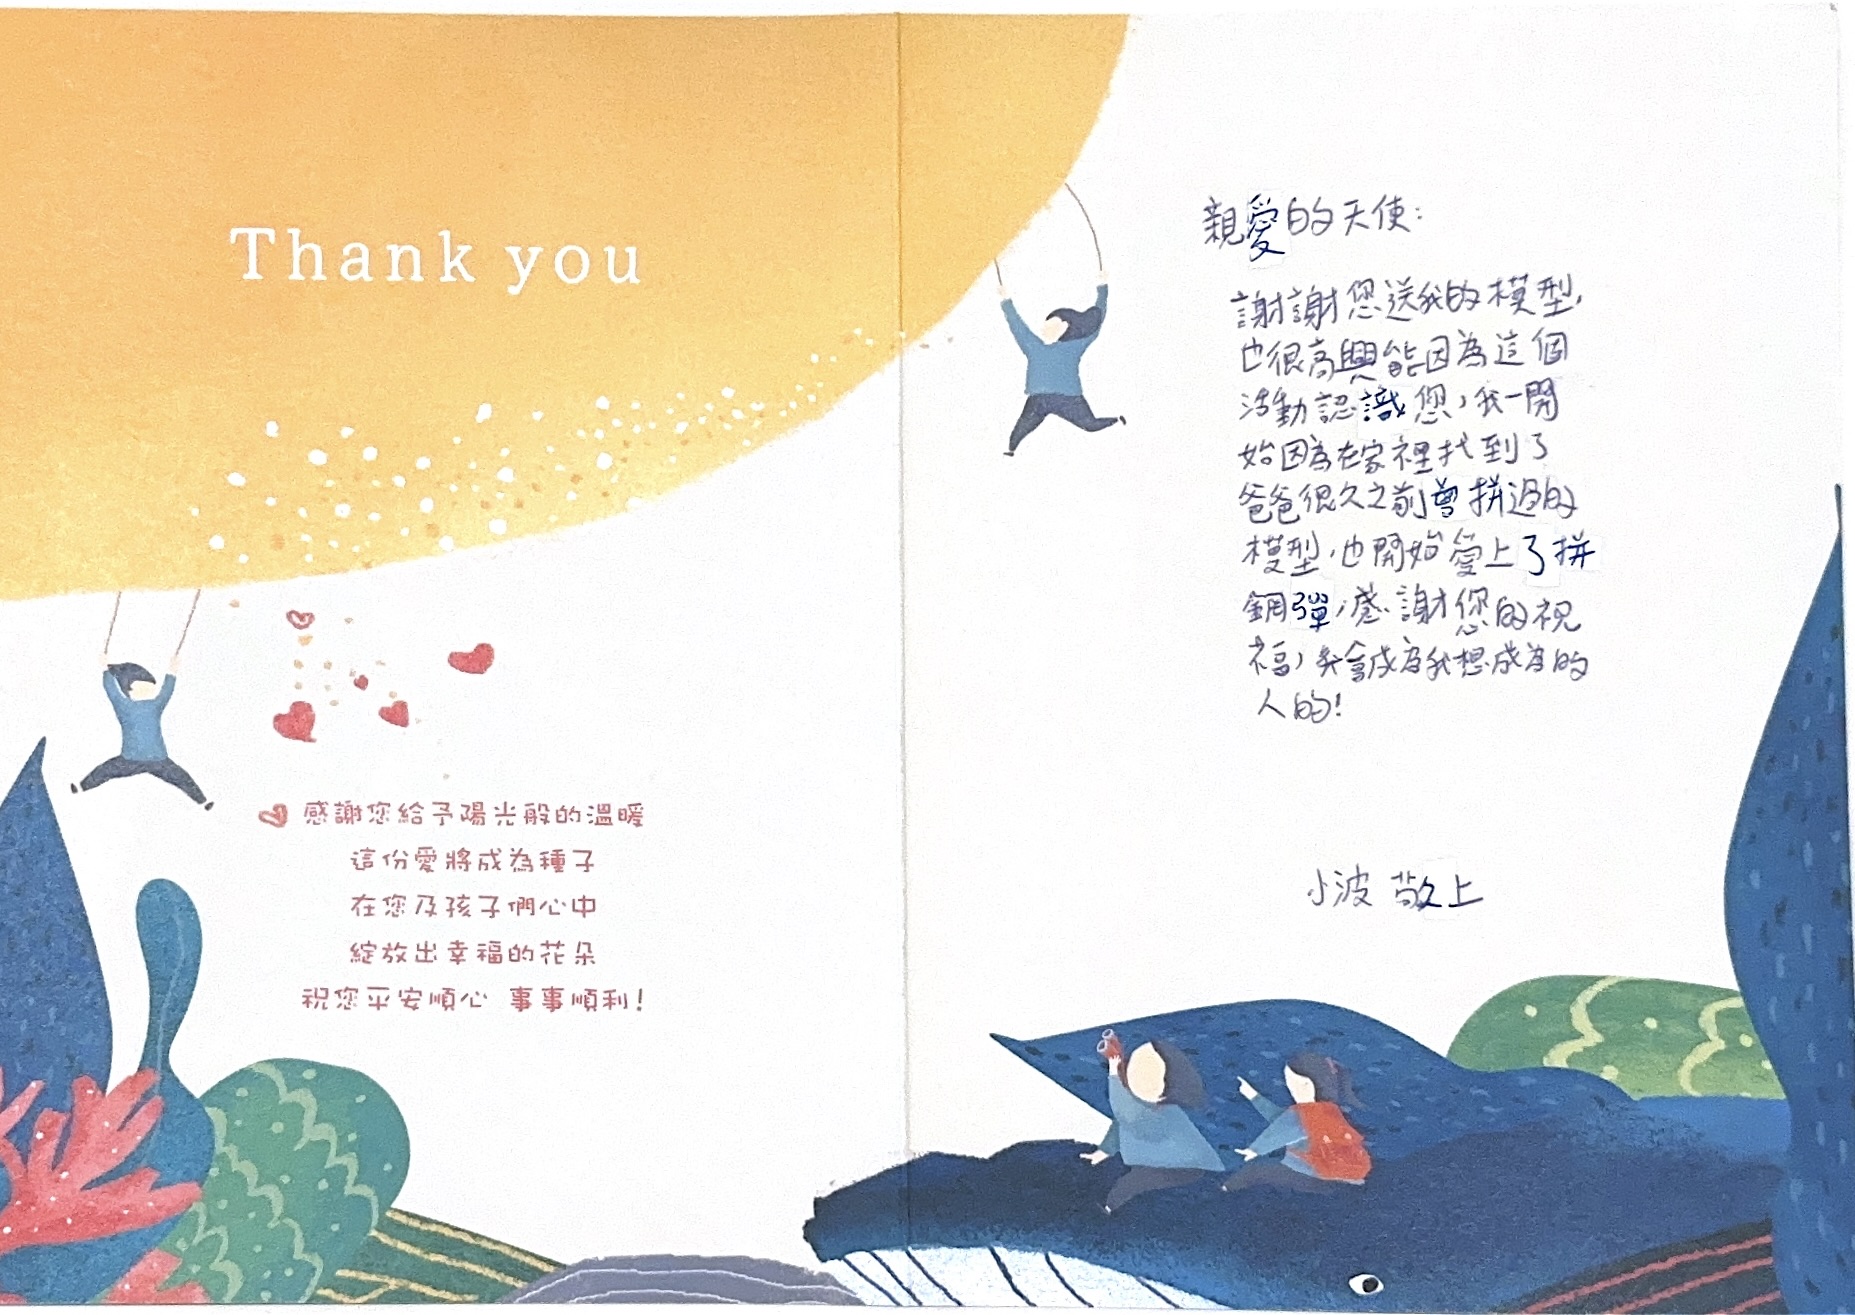 Thank you
感謝您給予陽光般的溫暖
這份愛將成為種子
在您及孩子們心中
綻放出幸福的花朵
祝您平安順心 事事順利!
親愛的天使:
謝謝您送我的模型,
也很高興能因為這個
活動認識您,我一開
始因為在家裡找到了
爸爸很久之前曾拼過的
模型,也開始愛上了拼
鋼彈,感謝您的祝
福,我會成為我想成為的
人的!
小波 敬上